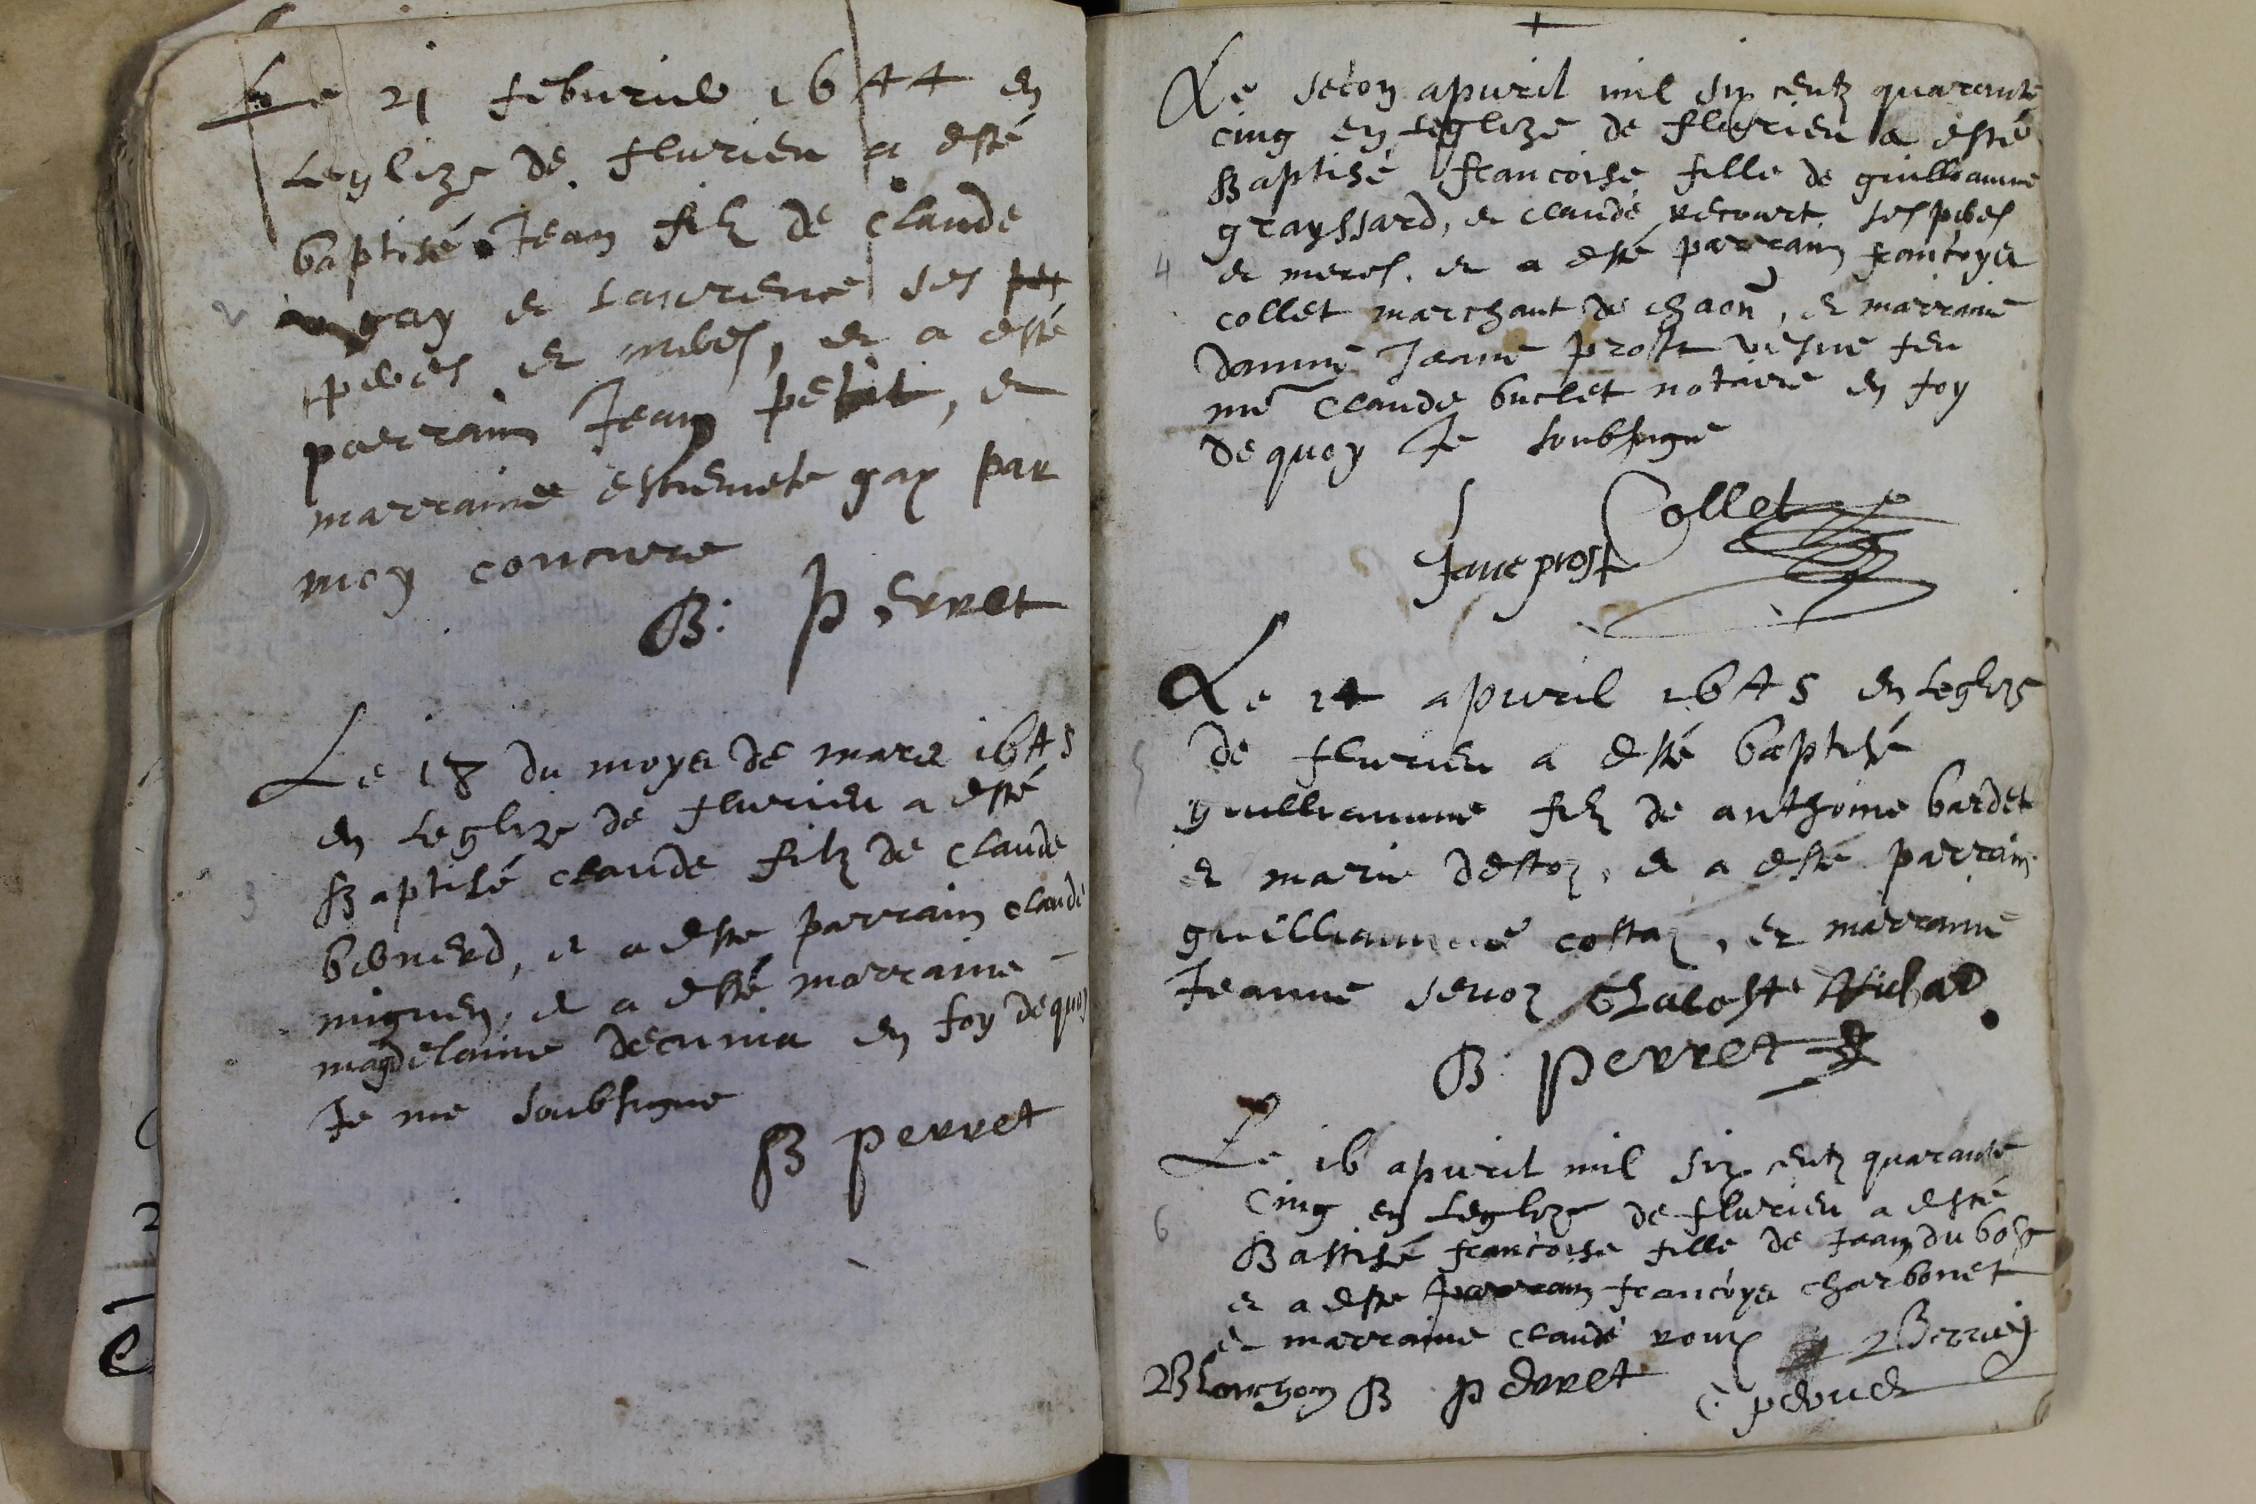 Le 21 feburier 1644 en
leglize de flurieu a esté
baptisé Jean filz de Claude
gay et laurence ses
peres et meres, et a esté
parrain Jean petit, et
marraine estienete gay par
moy concure
B: Perret
Le 18 du moys de mars 1645
en leglize de flurieu a esté
Baptisé claude filz de claude
bernerd, et a este parrain claude
miguen, et a esté marraine
magdelaine decunia en foy dequoy
Je me soubsigne
B perret
Le secon apuril mil six centz quarante
cinq en leglize de flurieu a esté
Baptisé francoise fille de guilliaume
grayssard, et claude recourt ses peres
4 et meres. et a esté parrain francoys
collet marchant de chaon, et marraine
damme Jeanne prost vesue feu
me claude buclet notaire en foy
de quoy Je soubsigne
Collet
Jane prost
Le 14 apuril 1645 en legliz
5 de flurieu a esté baptisé
guilliaume filz de anthoine bardet
et marie destoz, et a esté parrain
guilliaumme costaz, et marraine
Jeanne seruoz
B. Perret
Le 16 apuril mil six centz quarante
cinq en leglize de flurieu a esté
6 Batisé francoise fille de Jean du bost
et a este parrain francoys charbonet
et marraine claude roux
Blanchon B perret